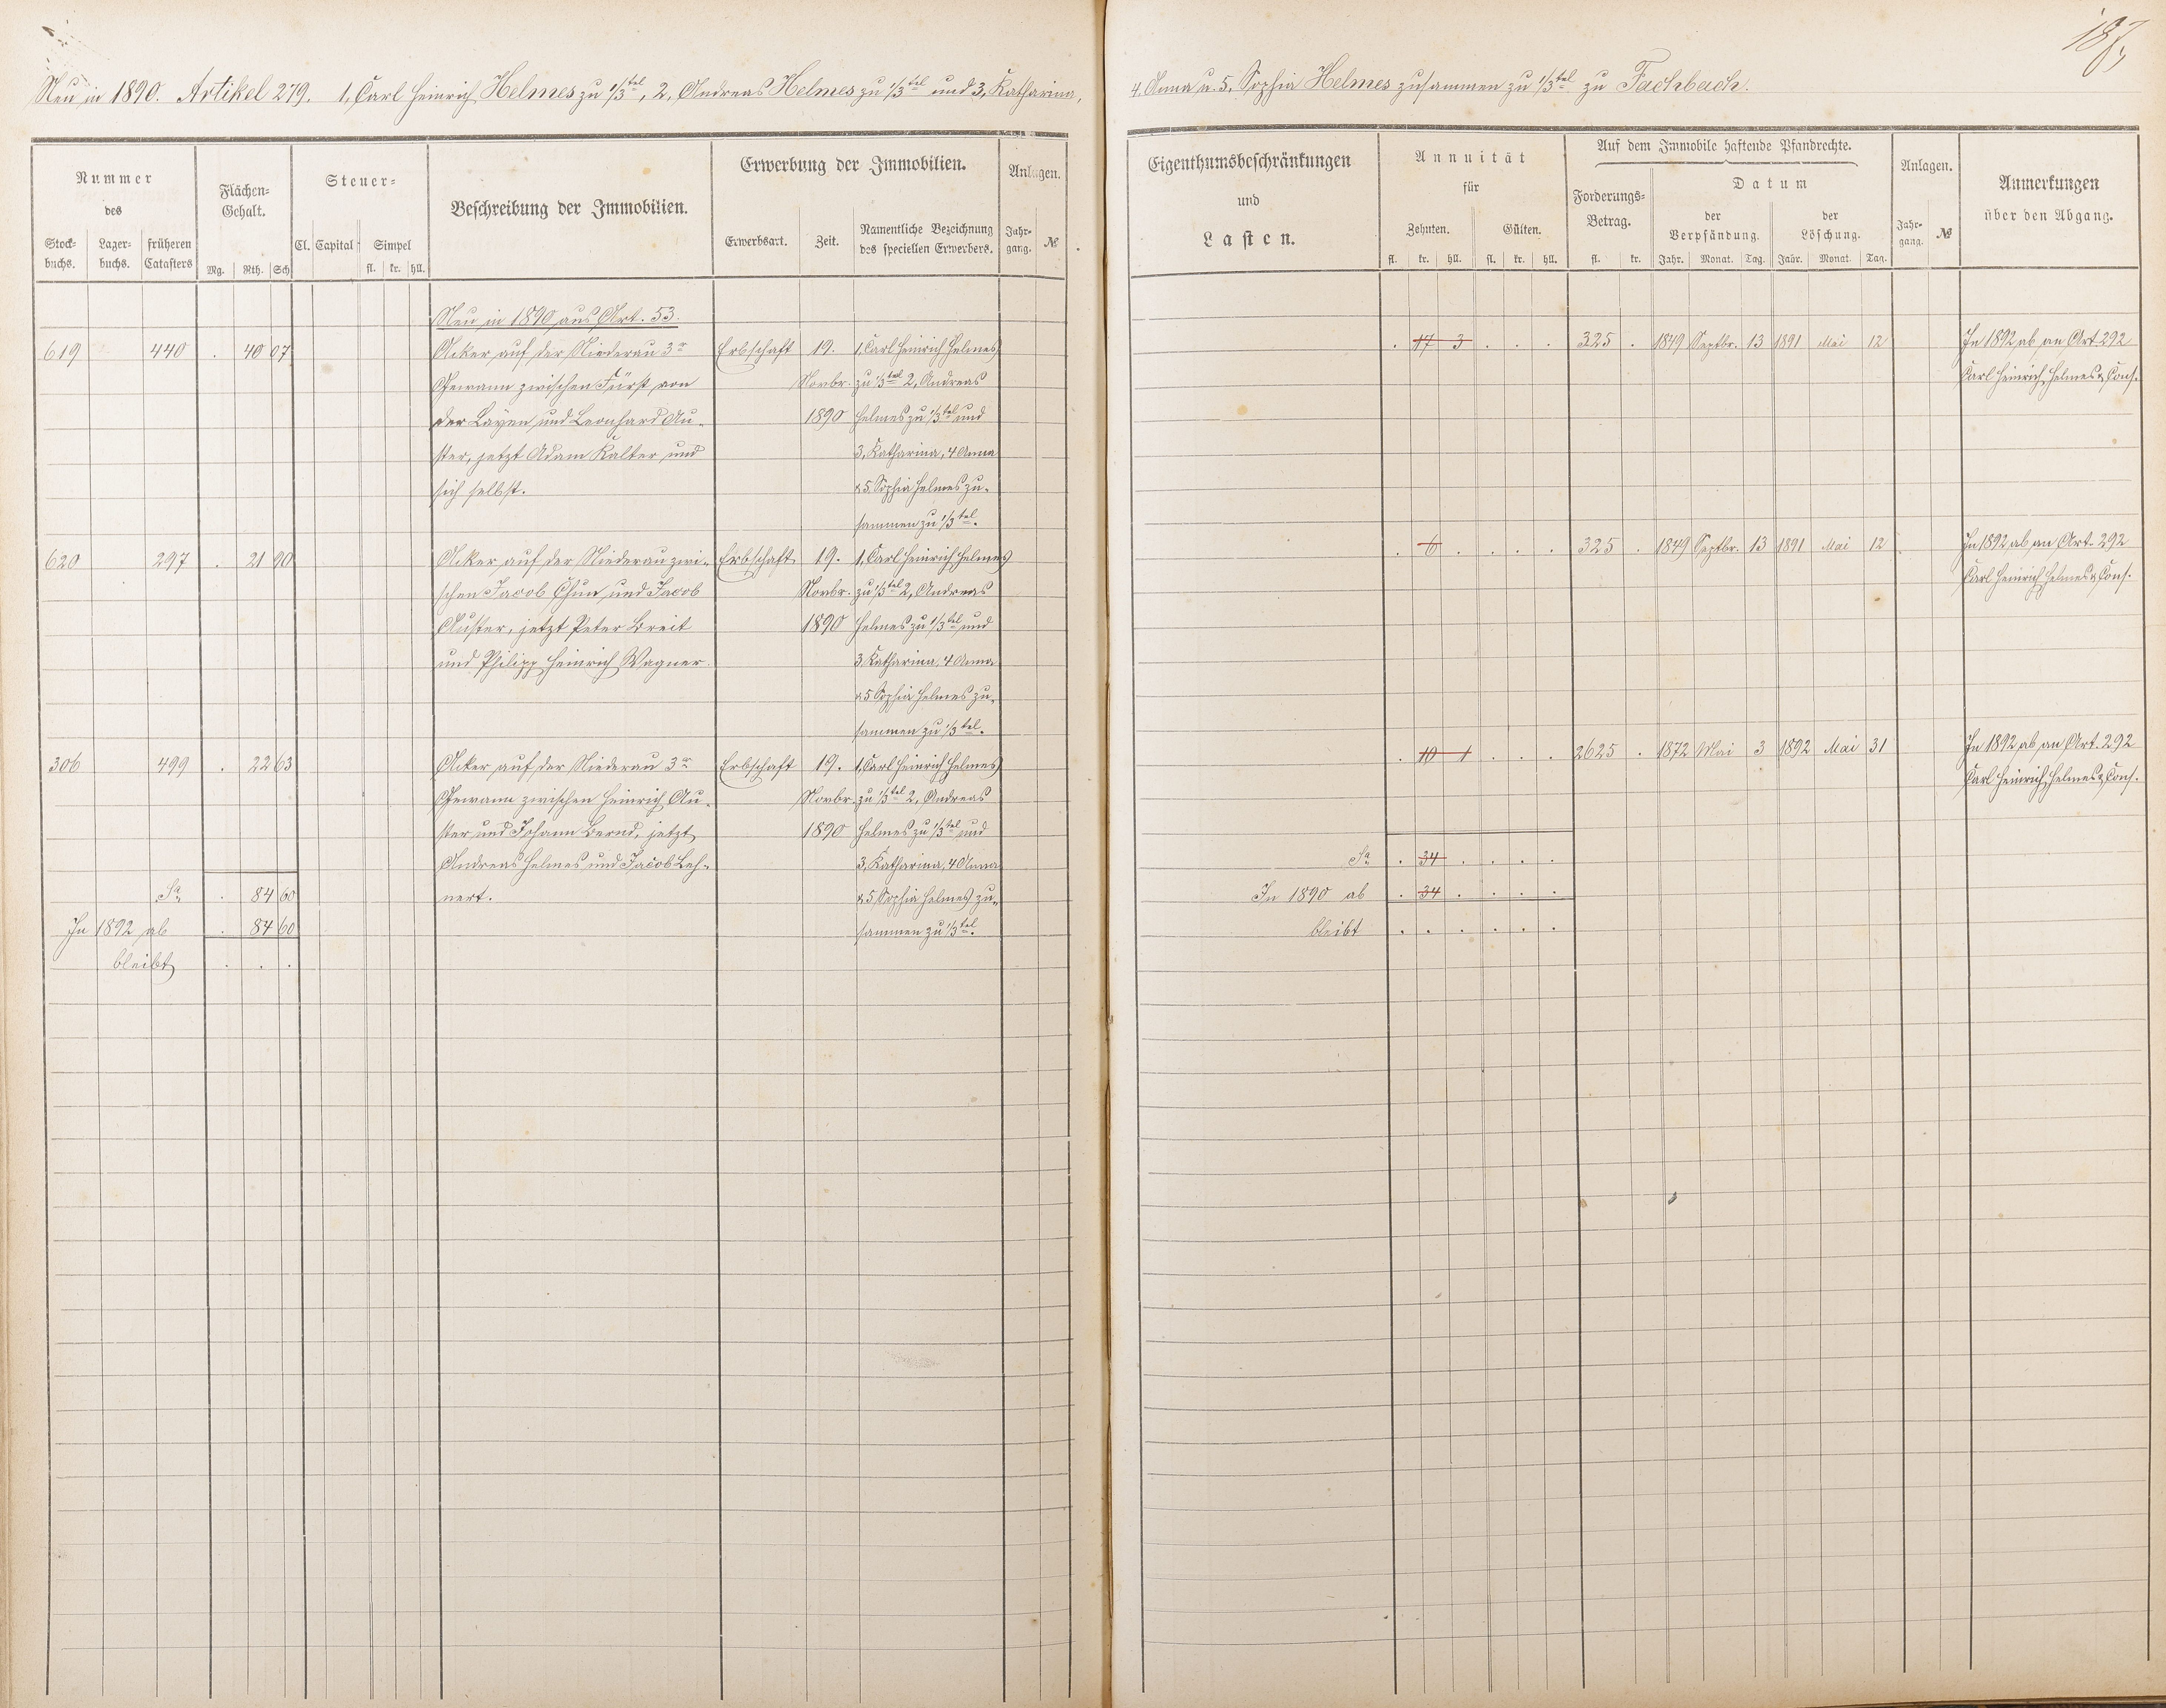 187,
Neu in 1890. Artikel 279. 1, Carl Heinrich Helmes zu 1/3tel, 2, Andreas Helmes zu 1/3tel und 3, Katharina,
4. Anna u. 5, Sophia Helmes zusammen zu 1/3tel zu Fachbach.
Nummer
des
Stock-
buchs.
Lager-
buchs.
früheren
Catasters
Flächen-
Gehalt.
Mg. Rth. Sch
Steuer-
Cl. Capital Simpel
fl. kr. hll.
Beschreibung der Immobilien.
Erwerbung der Immobilien.
Erwerbsart. Zeit.
Namentliche Bezeichnung
des speciellen Erwerbers.
Anlagen.
Jahr-
gang. №
Neu in 1890 aus Art. 53.
619 440 . 40 07
Acker auf der Niederau 3r
Gewann zwischen Fürst von
der Layen und Leonhard Au-
ster, jetzt Adam Kalter und
sich selbst.
Erbschaft
19.
Novbr.
1890
1, Carl Heinrich Helmes
zu 1/3tel 2, Andreas
Helmes zu 1/3tel und
3, Katharina, 4 Anna
& 5, Sophia Helmes zu-
sammen zu 1/3tel.
620 297 . 21 90
Acker auf der Niederau zwi-
schen Jacob Thun und Jacob
Auster, jetzt Peter Breit
und Philipp Heinrich Wagner.
Erbschaft
19.
Novbr.
1890
1, Carl Heinrich Helmes
zu 1/3tel 2, Andreas
Helmes zu 1/3tel und
3, Katharina, 4 Anna
& 5 Sophia Helmes zu-
sammen zu 1/3tel.
306 499 . 22 63
Acker auf der Niederau 3r
Gewann zwischen Heinrich Au-
ster und Johann Bernd, jetzt
Andreas Helmes und Jacob Leh-
nert.
Erbschaft
19.
Novbr.
1890
1, Carl Heinrich Helmes
zu 1/3tel 2, Andreas
Helmes zu 1/3tel und
3, Katharina, 4 Anna
& 5, Sophia Helmes zu-
sammen zu 1/3tel.
Sa . 84 60
In 1892 ab . 84 60
bleibt . . .
Eigenthumsbeschränkungen
und
Lasten.
Annuität
für
Zehnten. Gülten.
fl. kr. hll. fl. kr. hll.
Auf dem Immobile haftende Pfandrechte.
Forderungs-
Betrag.
fl. kr.
Datum
der
Verpfändung.
Jahr. Monat. Tag.
der
Löschung.
Jahr. Monat. Tag.
Anlagen.
Jahr-
gang. №
Anmerkungen
über den Abgang.
. 17 3 . . . 325 . 1849 Septbr. 13 1891 Mai 12
In 1892 ab an Art 292
Carl Heinrich Helmes & Cons.
. 6 . . . . 325 . 1849 Septbr. 13 1891 Mai 12
In 1892 ab an Art. 292
Carl Heinrich Helmes & Cons.
. 10 1 . . . 2625 . 1872 Mai 3 1892 Mai 31
In 1892 ab an Art. 292
Carl Heinrich Helmes & Cons.
Sa . 34 . . . .
In 1890 ab . 34 . . . .
bleibt . . . . . .